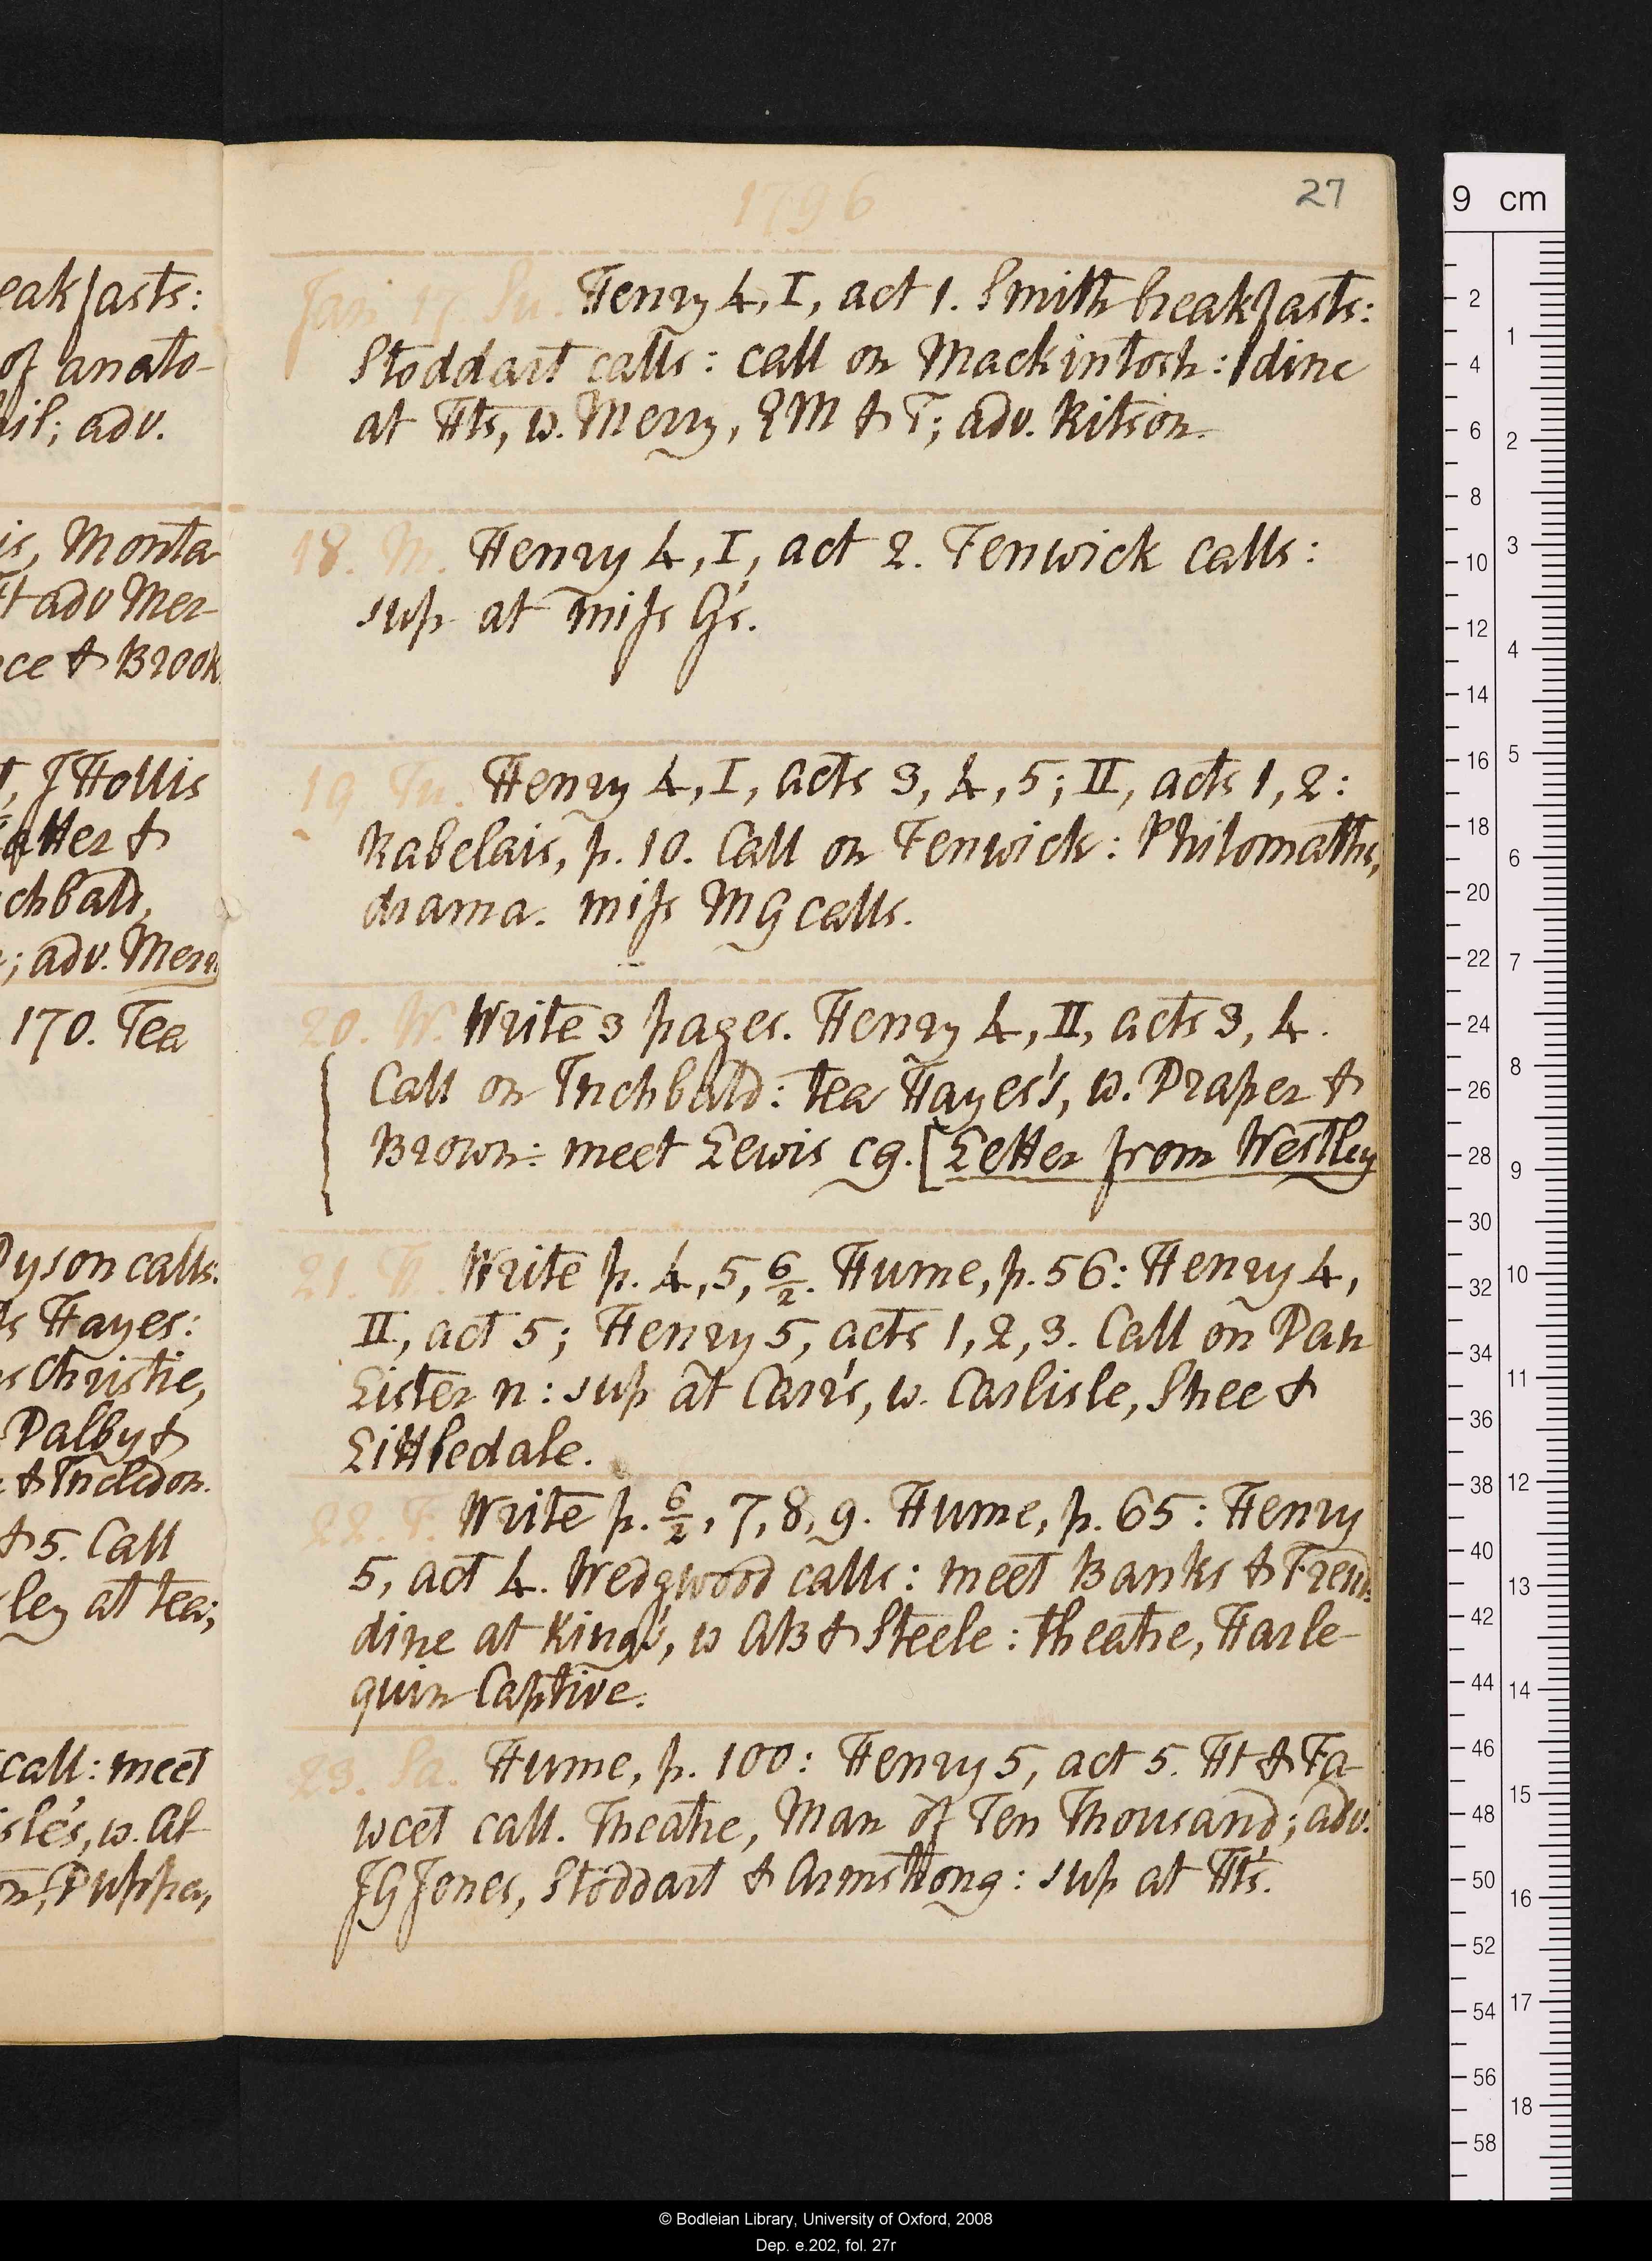 eakfasts:
of anato-
il; adv.
is, Monta
Ht adv Mer-
ce & Brook
, J Hollis
Letter &
chbald,
; adv. Merry
170. Tea
Dyson calls.
s Hayes:
s Christie,
Dalby &
& Incledon.
& 5. Call
ley at tea;
call: meet
isle's, w. Al-
on, Puppa,
1796
27
Jan. 17. Su. Henry 4, I, act 1. Smith breakfasts:
Stoddart calls: call on Mackintosh: dine
at Hts, w. Merry, EM & T; adv. Ritson.
18. M. Henry 4, I, act 2. Fenwick calls:
sup at miss G's.
19. Tu. Henry 4, I, acts 3, 4, 5; II, acts 1, 2:
Rabelais, p. 10. Call on Fenwick: Philomaths,
drama. miss MG calls.
20. W. Write 3 pages. Henry 4, II, acts 3, 4.
Call on Inchbald: tea Hayes's, w. Draper &
Brown: meet Lewis cg. [Letter from Westley
21. Th. Write p. 4, 5, 6/2. Hume, p. 56: Henry 4,
II, act 5; Henry 5, acts 1, 2, 3. Call on Dan
Lister n: sup at Carr's, w. Carlisle, Shee &
Littledale.
22. F. Write p. 6/2, 7, 8, 9. Hume, p. 65: Henry
5, act 4. Wedgwood calls: meet Banks & Frend:
dine at King's, w AB & Steele: theatre, Harle-
quin Captive.
23. Sa. Hume, p. 100: Henry 5, act 5. Ht & Fa-
wcet call. Theatre, Man of Ten Thousand; adv.
JG Jones, Stoddart & Armstrong: sup at Ht's.
9 cm
2
4
6
8
10
12
14
16
18
20
22
24
26
28
30
32
34
36
38
40
42
44
46
48
50
52
54
56
58
1
2
3
4
5
6
7
8
9
10
11
12
13
14
15
16
17
18
© Bodleian Library, University of Oxford, 2008
Dep. e.202, fol. 27r